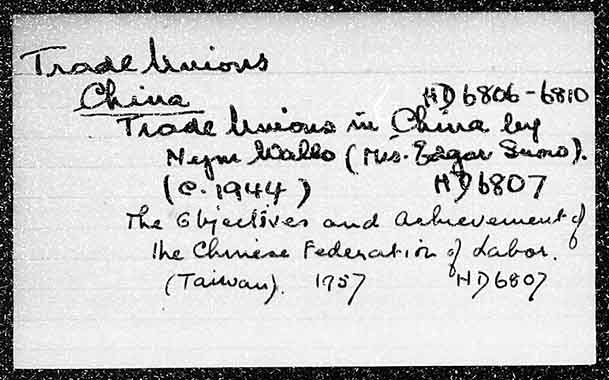 Trade Unions
China HD6806-6810
Trade Unions in China by
Nym Wales (Mrs. Edgar Snow).
(c. 1944) HD6807
The Objectives and Achievement of
the Chinese Federation of Labor.
(Taiwan). 1957 HD6807